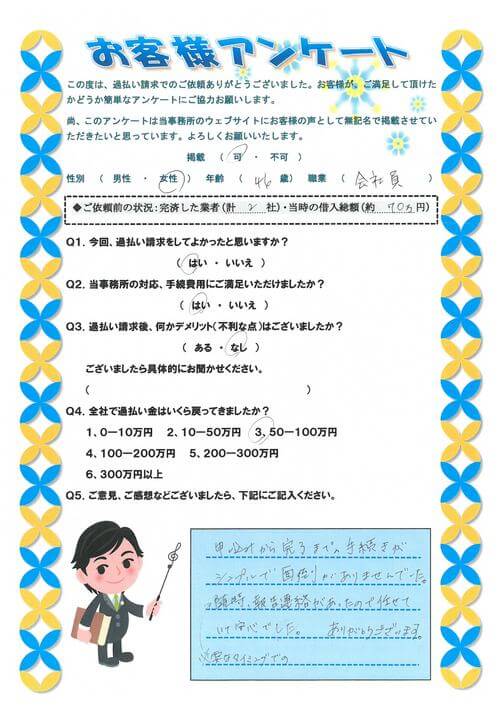 お客様アンケート
この度は、過払い請求でのご依頼ありがとうございました。お客様が、ご満足して頂けた
かどうか簡単なアンケートにご協力お願いします。
尚、このアンケートは当事務所のウェブサイトにお客様の声として無記名で掲載させてい
ただきたいと思っています。よろしくお願いいたします。
掲載 （ 可 ・ 不可 ）
性別 （ 男性 ・ 女性 ） 年齢 （ 46 歳） 職業 （ 会社員 ）
◆ご依頼前の状況：完済した業者（計 2 社）・当時の借入総額（約 70万 円）
Q1．今回、過払い請求をしてよかったと思いますか？
（ はい ・ いいえ ）
Q2．当事務所の対応、手続費用にご満足いただけましたか？
（ はい ・ いいえ ）
Q3．過払い請求後、何かデメリット（不利な点）はございましたか？
（ ある ・ なし ）
ございましたら具体的にお聞かせください。
（ ）
Q4．全社で過払い金はいくら戻ってきましたか？
1、0－10万円 2、10－50万円 3、50－100万円
4、100－200万円 5、200－300万円
6、300万円以上
Q5．ご意見、ご感想などございましたら、下記にご記入ください。
申込みから完了までの手続きが
シンプルで面倒がありませんでした。
随時、報告連絡があったので任せて
いて安心でした。 ありがとうございます。
必要なタイミングでの